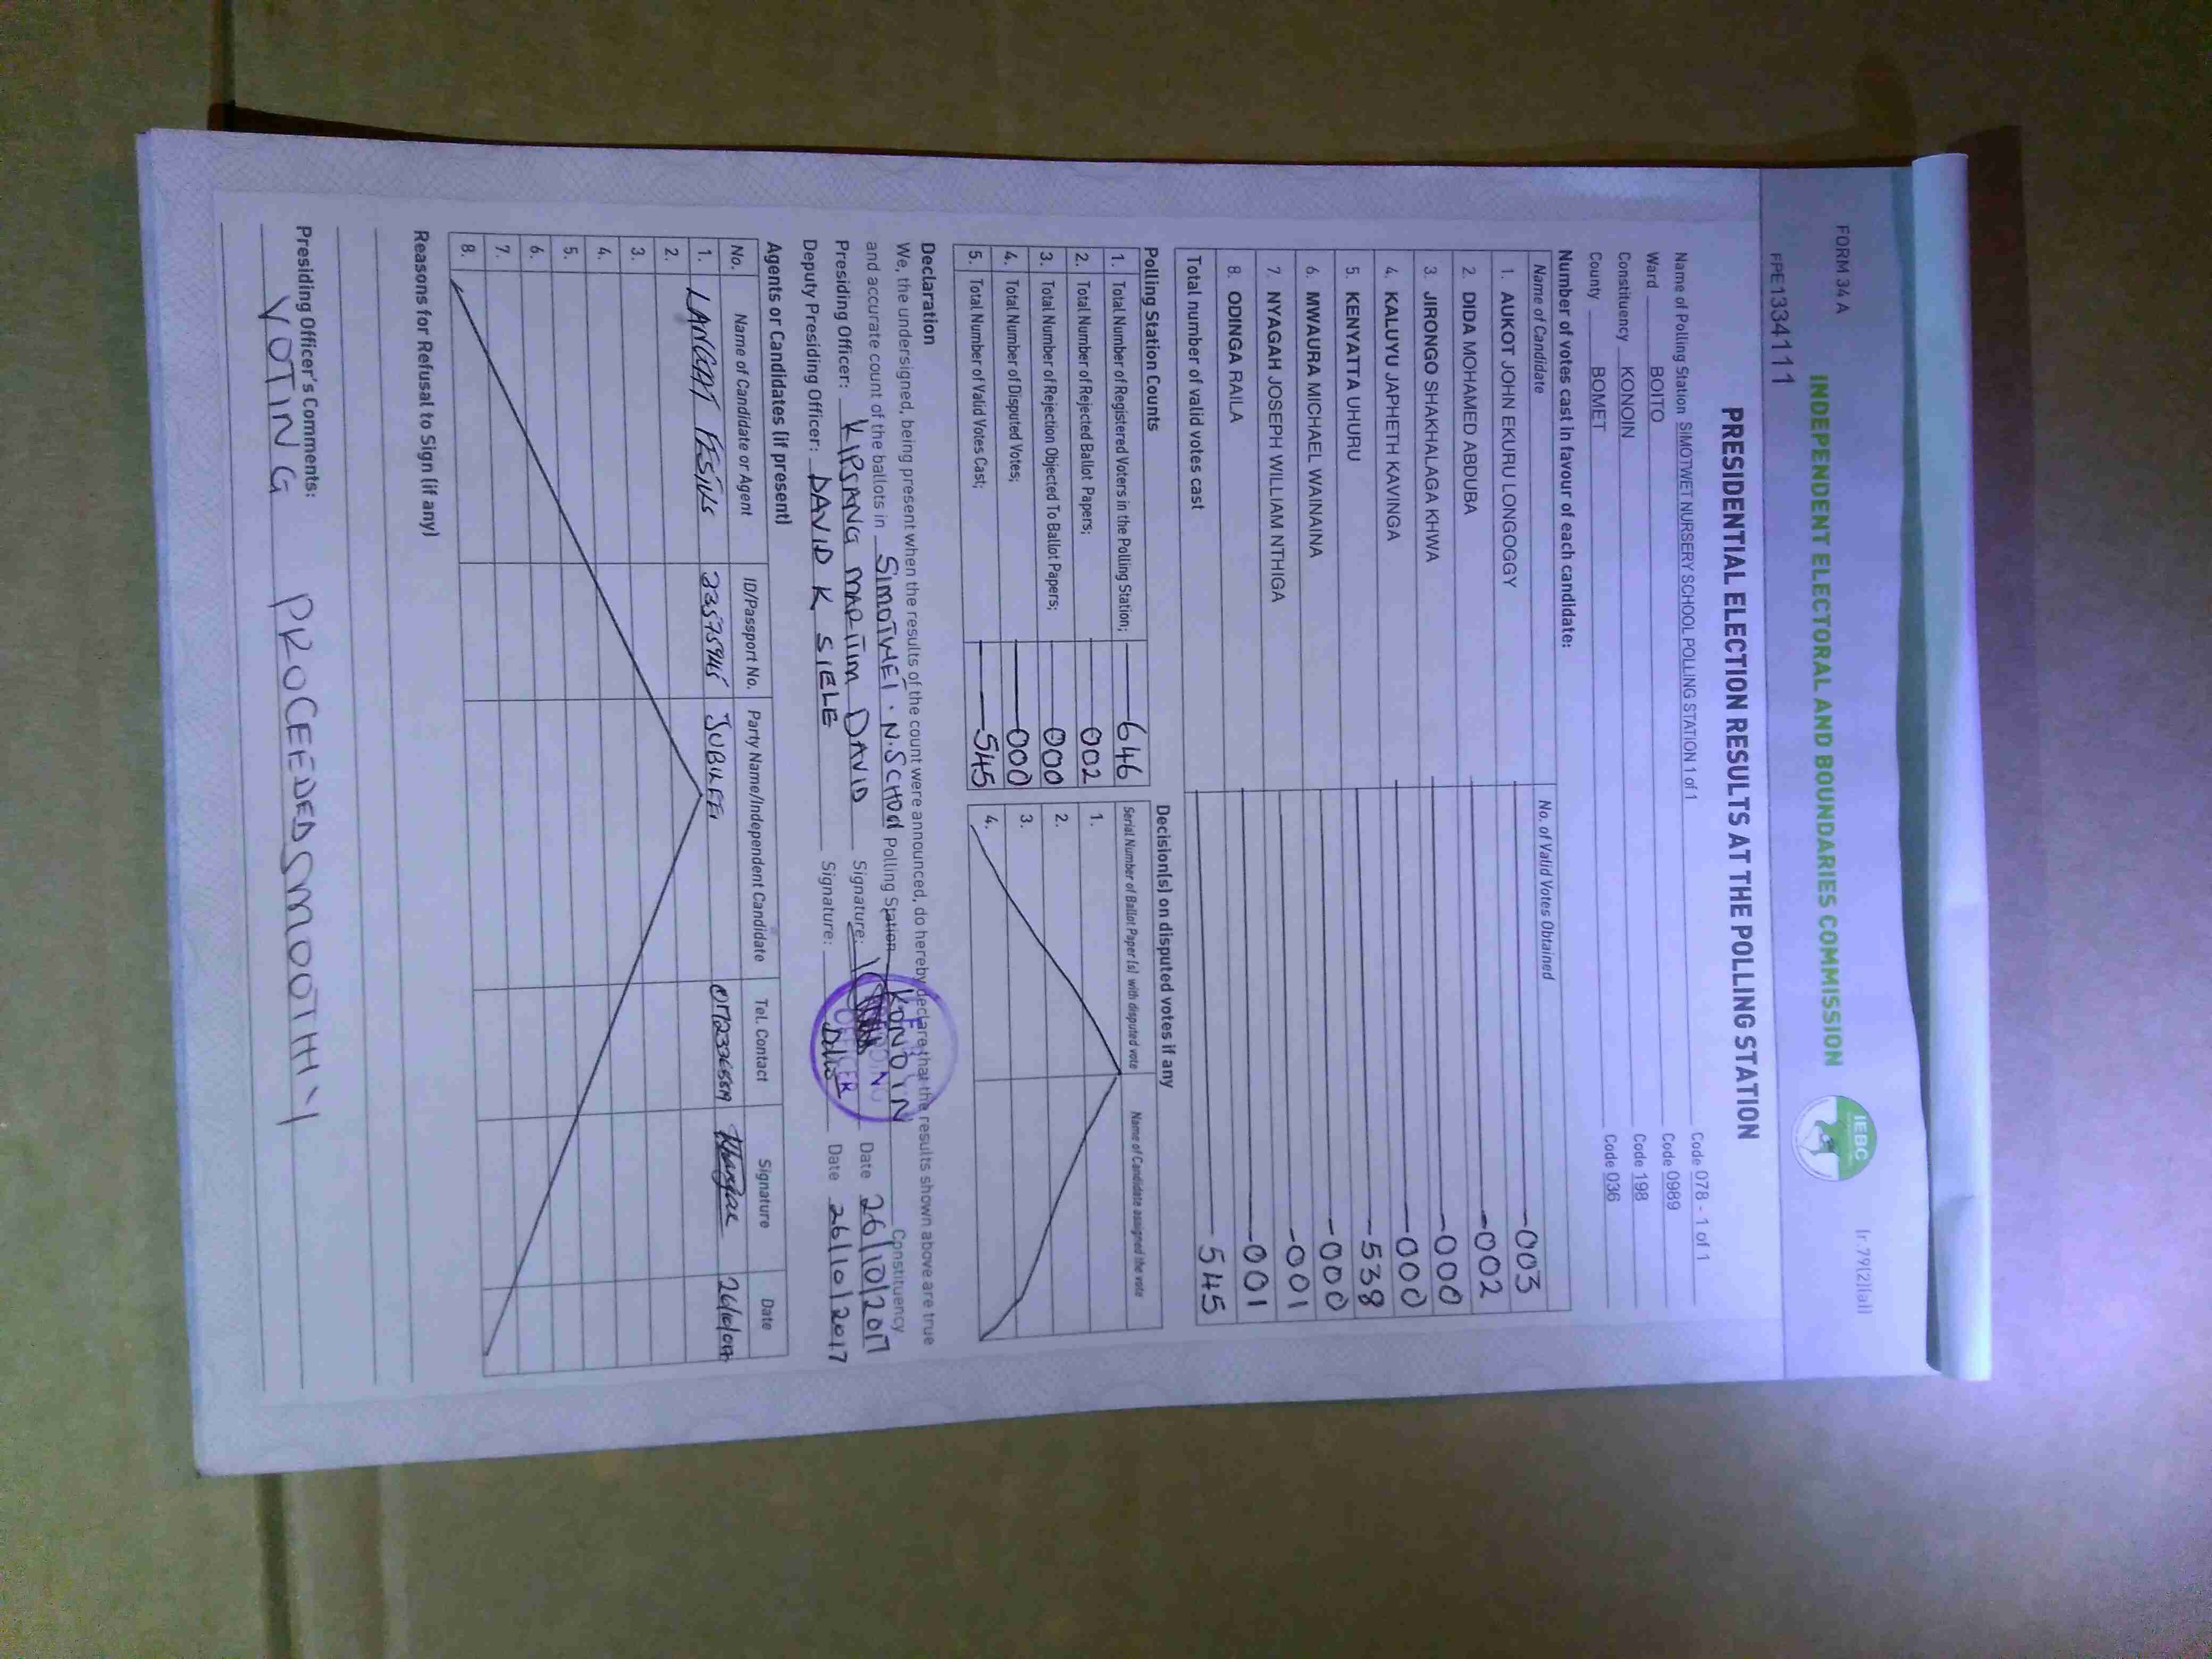 FORM 34 A
INDEPENDENT ELECTORAL AND BOUNDARIES COMMISSION
IEBC
(r.79(2)(a))
FPE1334111
PRESIDENTIAL ELECTION RESULTS AT THE POLLING STATION
Name of Polling Station SIMOTWET NURSERY SCHOOL POLLING STATION 1 of 1 Code 078 - 1 of 1
Ward BOITO Code 0989
Constituency KONOIN Code 198
County BOMET Code 036
Number of votes cast in favour of each candidate:
Name of Candidate No. of Valid Votes Obtained
1. AUKOT JOHN EKURU LONGOGGY -003
2. DIDA MOHAMED ABDUBA -002
3. JIRONGO SHAKHALAGA KHWA -000
4. KALUYU JAPHETH KAVINGA -000
5. KENYATTA UHURU -538
6. MWAURA MICHAEL WAINAINA -000
7. NYAGAH JOSEPH WILLIAM NTHIGA -001
8. ODINGA RAILA -001
Total number of valid votes cast 545
Polling Station Counts
1. Total Number of Registered Voters in the Polling Station; 646
2. Total Number of Rejected Ballot Papers; 002
3. Total Number of Rejection Objected To Ballot Papers; 000
4. Total Number of Disputed Votes; 000
5. Total Number of Valid Votes Cast; 545
Decision(s) on disputed votes if any
Serial Number of Ballot Paper(s) with disputed vote Name of Candidate assigned the vote
1.
2.
3.
4.
Declaration
We, the undersigned, being present when the results of the count were announced, do hereby declare that the results shown above are true
and accurate count of the ballots in SIMOTWET. N. SCHOOL Polling Station KONOIN Constituency
Presiding Officer: KIPSANG MARITIM DAVID Signature: Date 26/10/2017
Deputy Presiding Officer: DAVID K SIELE Signature: Date 26/10/2017
OFFICER
Agents or Candidates (if present)
No. Name of Candidate or Agent ID/Passport No. Party Name/Independent Candidate Tel. Contact Signature Date
1. LANGAT JUBILEE
2.
3.
4.
5.
6.
7.
8.
Reasons for Refusal to Sign (if any)
Presiding Officer's Comments:
VOTING PROCEEDED SMOOTHLY